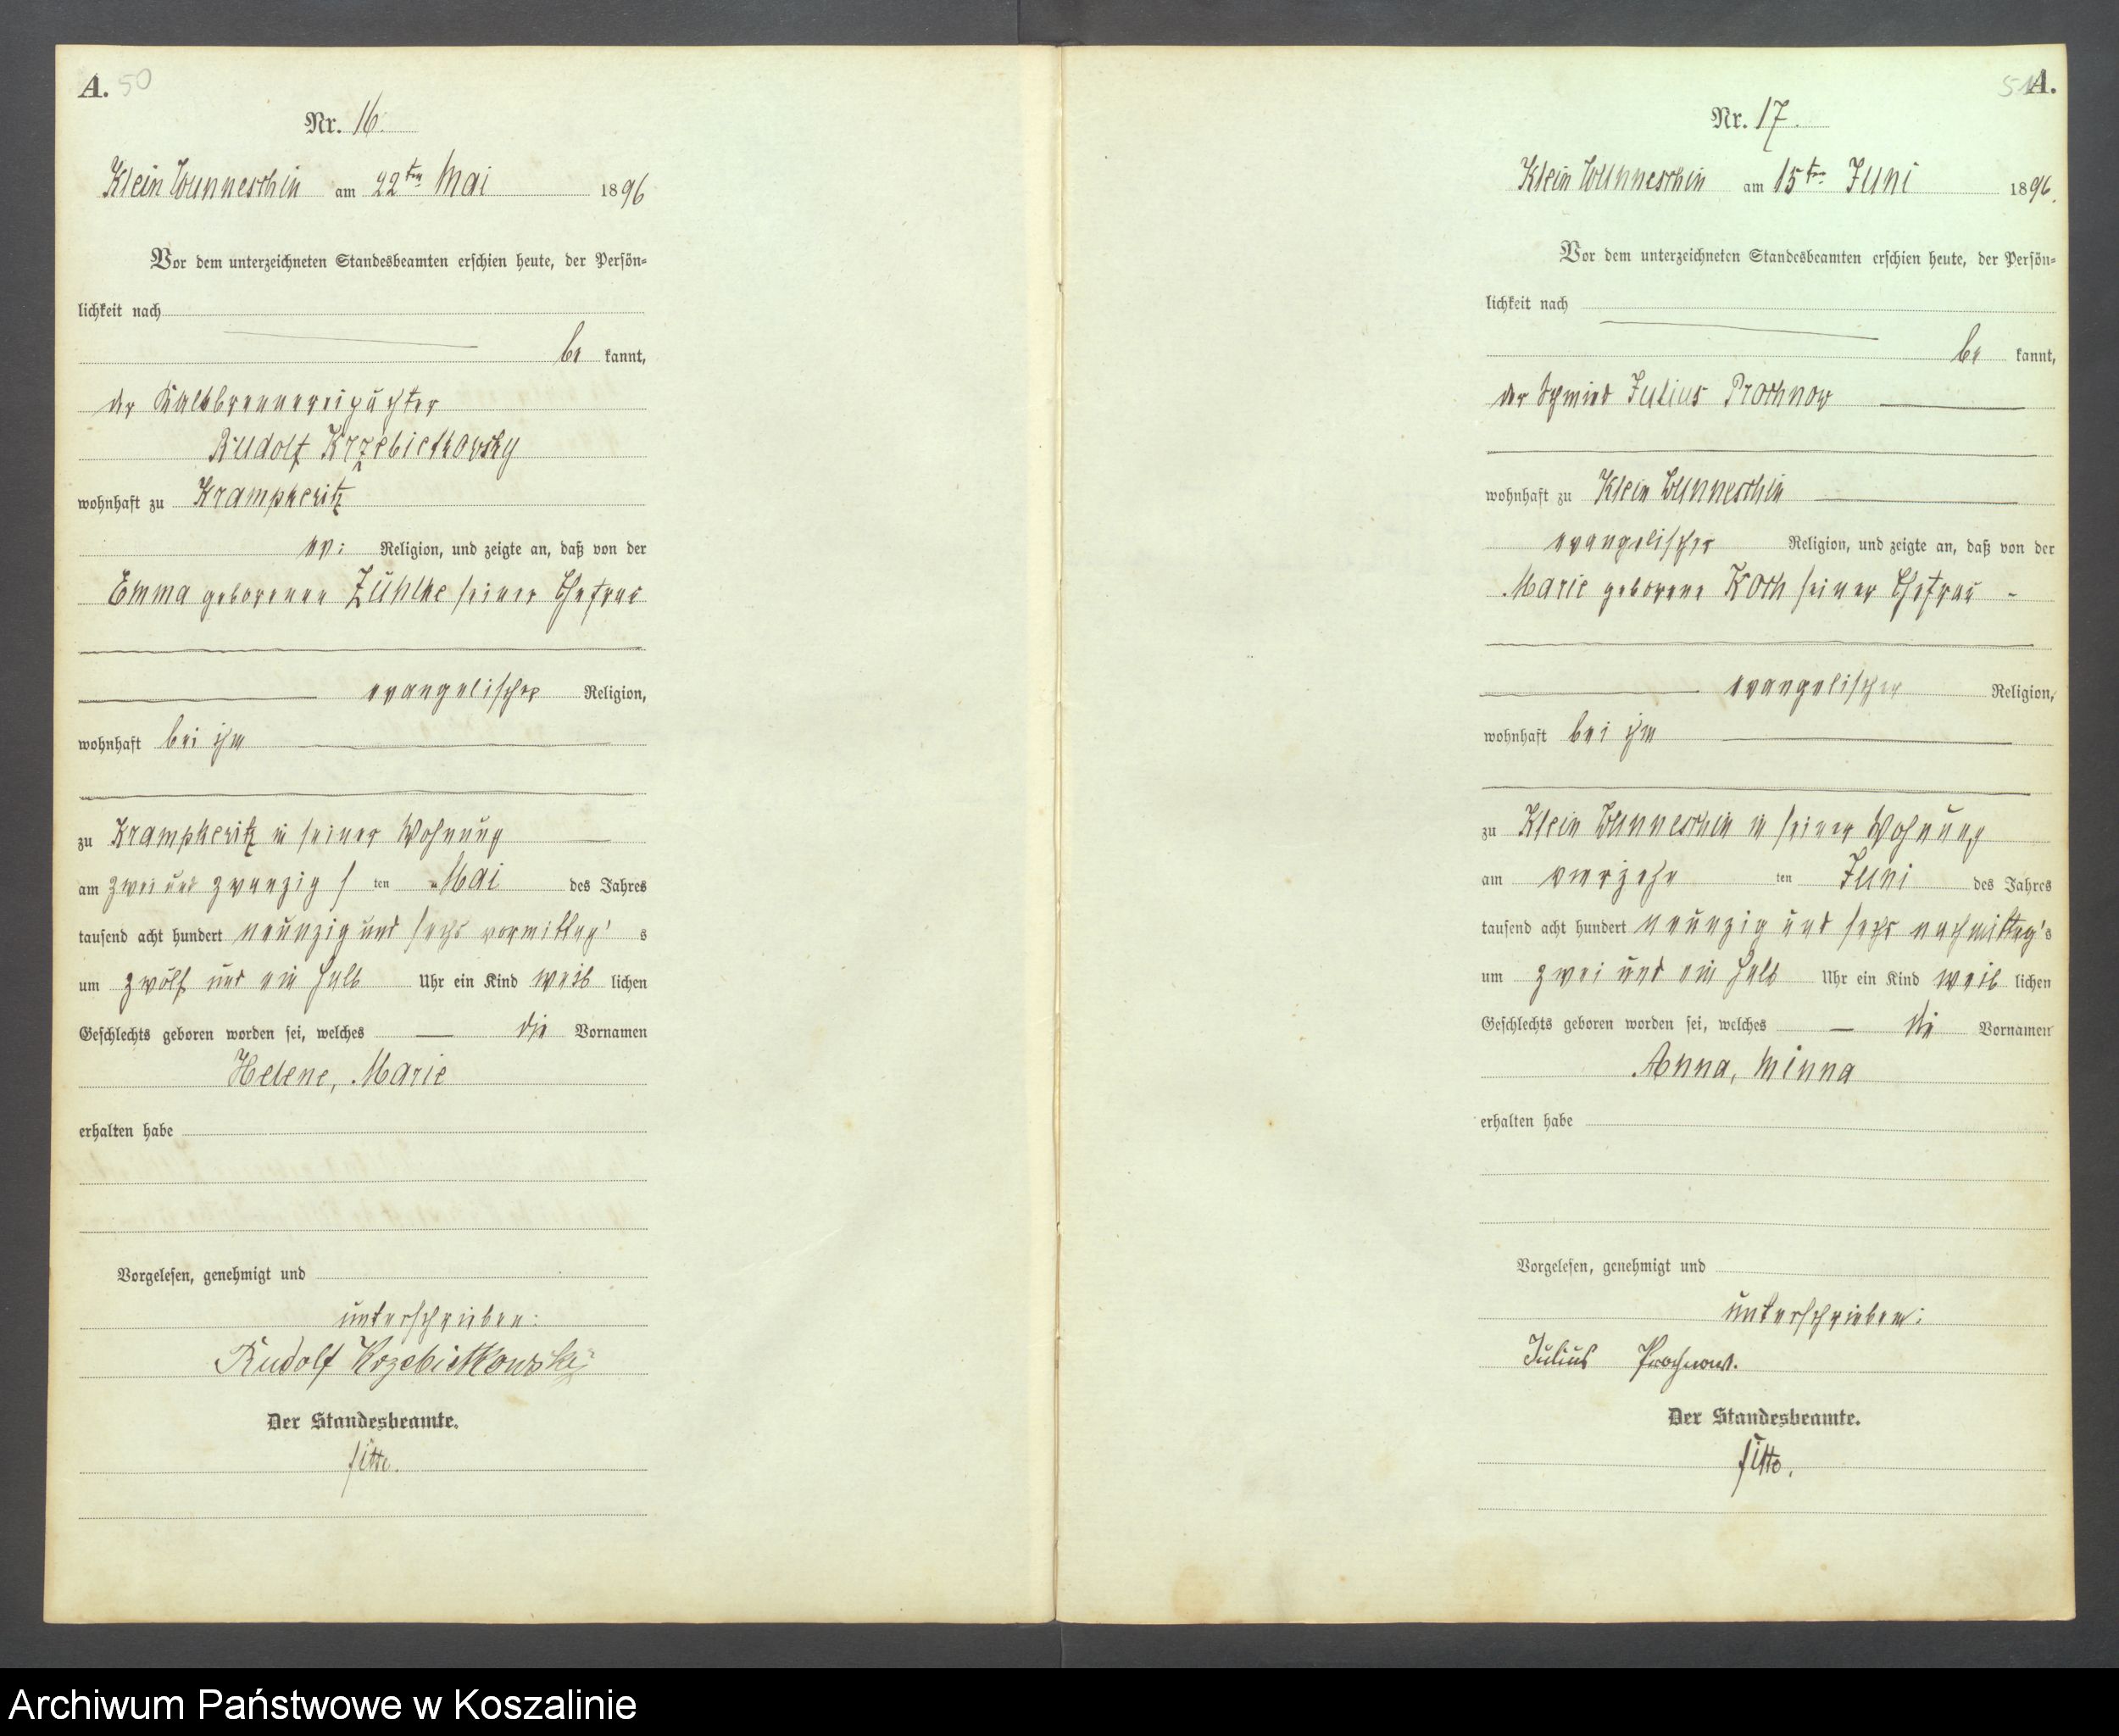 A. 50
Nr. 16.
Klein Wunneschin am 22ten Mai 1896
Vor dem unterzeichneten Standesbeamten erschien heute, der Persön=
lichkeit nach
be kannt,
der Kalkbrennereipächter
Rudolf Krzebietkowsky
wohnhaft zu Krampkewitz
ev: Religion, und zeigte an, daß von der
Emma geborenen Zühlke seiner Ehefrau
evangelischer Religion,
wohnhaft bei ihm
zu Krampkewitz in seiner Wohnung
am zwei und zwanzigs ten Mai des Jahres
tausend acht hundert neunzig und sechs vormittag s
um zwölf und ein halb Uhr ein Kind weib lichen
Geschlechts geboren worden sei, welches die Vornamen
Helene, Marie
erhalten habe
Vorgelesen, genehmigt und
unterschrieben:
Rudolf Krzebietkowsky
Der Standesbeamte.
51 A.
Nr. 17.
Klein Wunneschin am 15ten Juni 1896.
Vor dem unterzeichneten Standesbeamten erschien heute, der Persön=
lichkeit nach
be kannt,
der Schmied Julius Prochnow
wohnhaft zu Klein Wunneschin
evangelischer Religion, und zeigte an, daß von der
Marie geborene Koch seiner Ehefrau -
evangelischer Religion,
wohnhaft bei ihm
zu Klein Wunneschin in seiner Wohnung
am vierzehn ten Juni des Jahres
tausend acht hundert neunzig und sechs nachmittag's
um zwei und ein halb Uhr ein Kind weib lichen
Geschlechts geboren worden sei, welches die Vornamen
Anna, Minna
erhalten habe
Vorgelesen, genehmigt und
unterschrieben:
Julius Prochnow.
Der Standesbeamte.
Archiwum Państwowe w Koszalinie